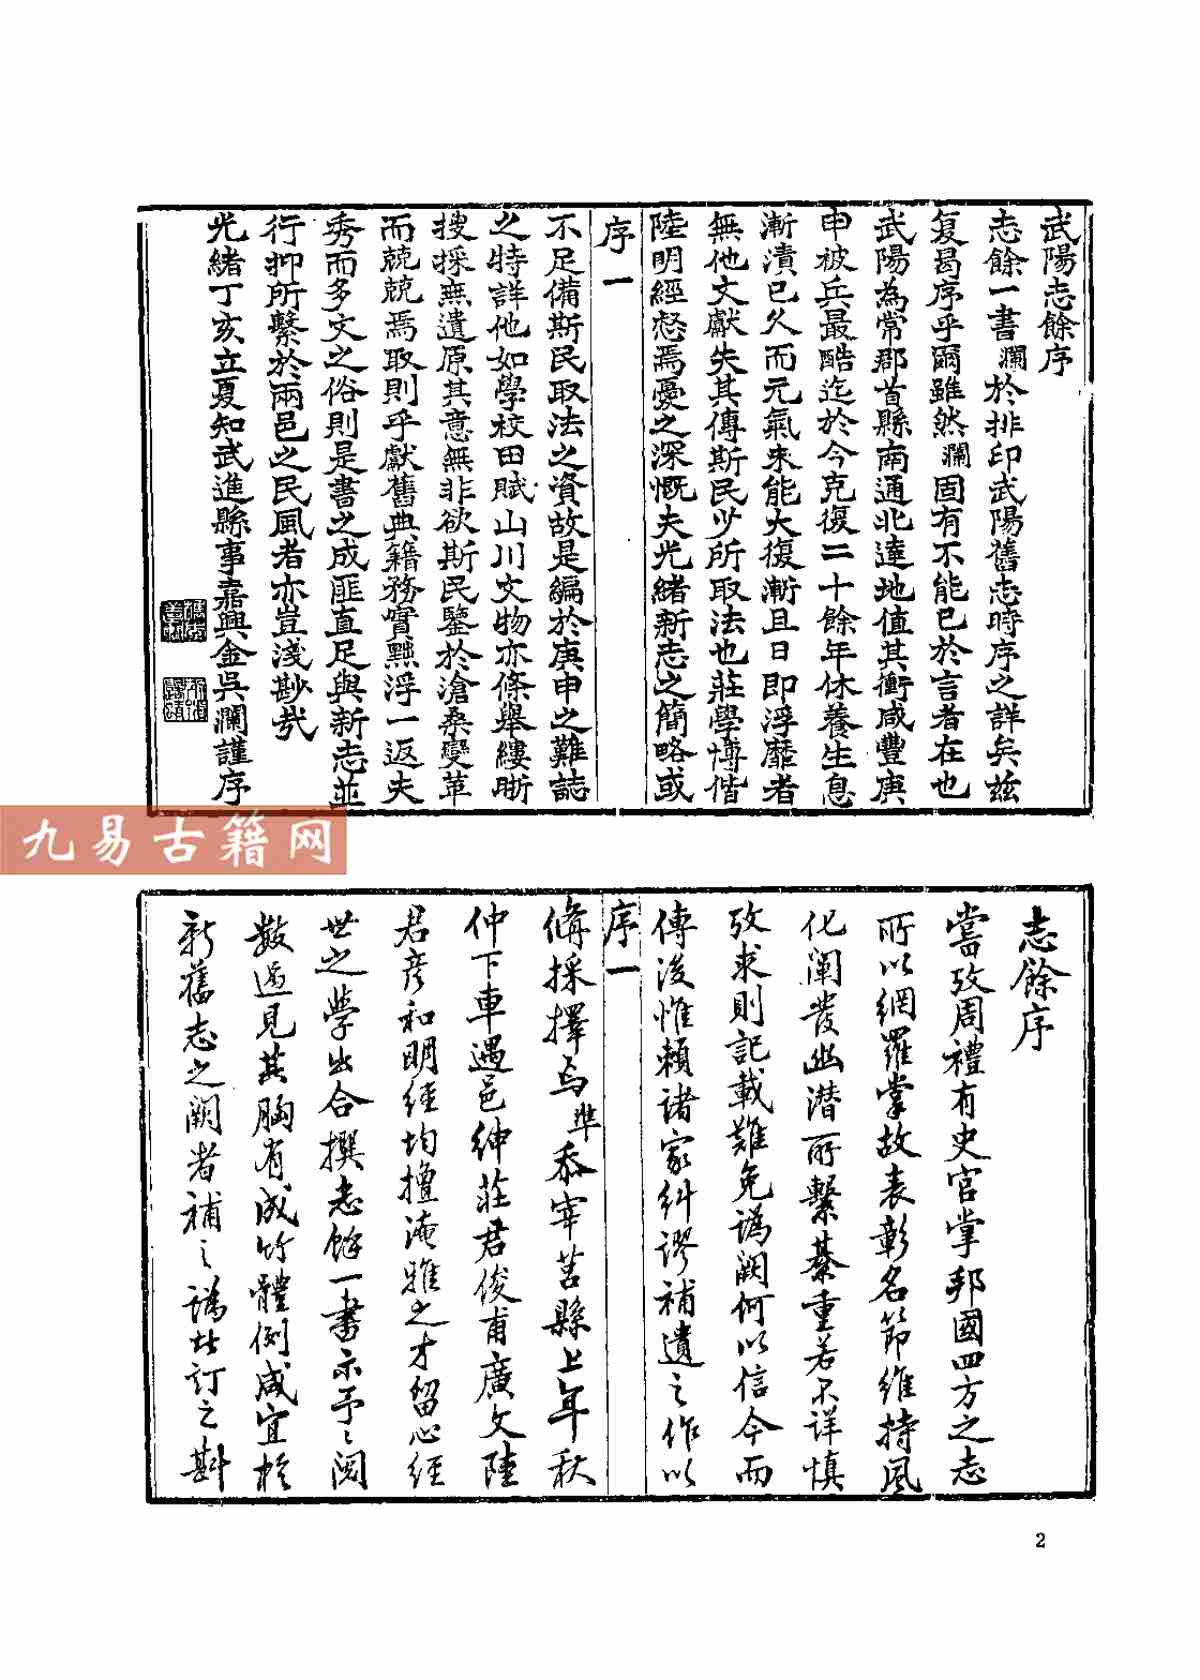 武陽志餘序
志餘一書瀾於排印武陽舊志時序之詳矣茲
复曷序乎爾雖然瀾固有不能已於言者在也
武陽為常郡首縣南通北達地值其衝咸豐庚
申被兵最酷迄於今克復二十餘年休養生息
漸漬已久而元氣未能大復漸且日即浮靡者
無他文獻失其傳斯民少所取法也莊學博偕
陸明經惄焉憂之深慨夫光緒新志之簡略或
序 一
不足備斯民取法之資故是編於庚申之難誌
之特詳他如學校田賦山川文物亦條舉縷晰
搜採無遺原其意無非欲斯民鑒於滄桑變革
而兢兢焉取則乎獻舊典籍務實黜浮一返夫
秀而多文之俗則是書之成匪直足與新志並
行抑所繫於兩邑之民風者亦豈淺尠哉
光緒丁亥立夏知武進縣事嘉興金吳瀾謹序
九易古籍网
志餘序
嘗攷周禮有史官掌邦國四方之志
所以網羅掌故表彰名節維持風
化闡發幽潛所繫綦重若不詳慎
攷求則記載難免譌闕何以信今而
傳後惟賴諸家糾謬補遺之作以
序 一
備採擇焉準忝宰茗縣上年秋
仲下車遇邑紳莊君俊甫廣文陸
君彥和明經均擅淹雅之才留心經
世之學出合撰志餘一書示予予閱
數過見其胸有成竹體例咸宜於
新舊志之闕者補之譌者訂之斟
2